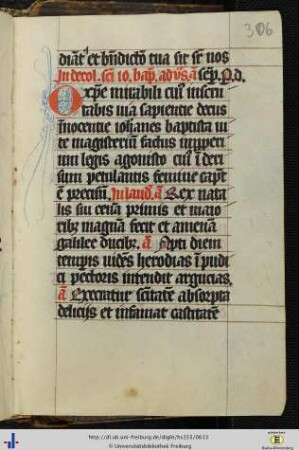 306
diāt et bn̄dictō tua sit sr̄ nos
In decol. sci io. bap. ad vs. a sep. N. d.
O xp̄e mirabili eius inscru
tabilis uia sapientie decus
innocentie iohanes baptista ui
te magisteriū factus in iperi
um legis agonista eius ī deri
sum petulantis femine capt
ē precisū. In laud. a Rex nata
lis sui cena primis et maio
ribz magnā fecit et amenā
galilee ducibz. a Apti diem
temporis uidēs herodias ī pudi
ci pectoris intendit argucias.
a Execratur scītatē absorpta
deliciis et infamat castitatē
http://dl.ub.uni-freiburg.de/diglit/hs210/0613
© Universitätsbibliothek Freiburg
Baden-Württemberg